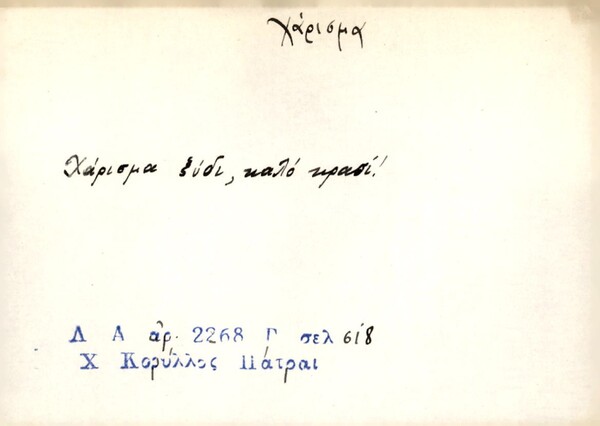 χάρισμα
Χάρισμα ξύδι, καλό κρασί!
Λ Α ἀρ. 2268 Γ σελ 618
Χ Κορύλλος Πάτραι